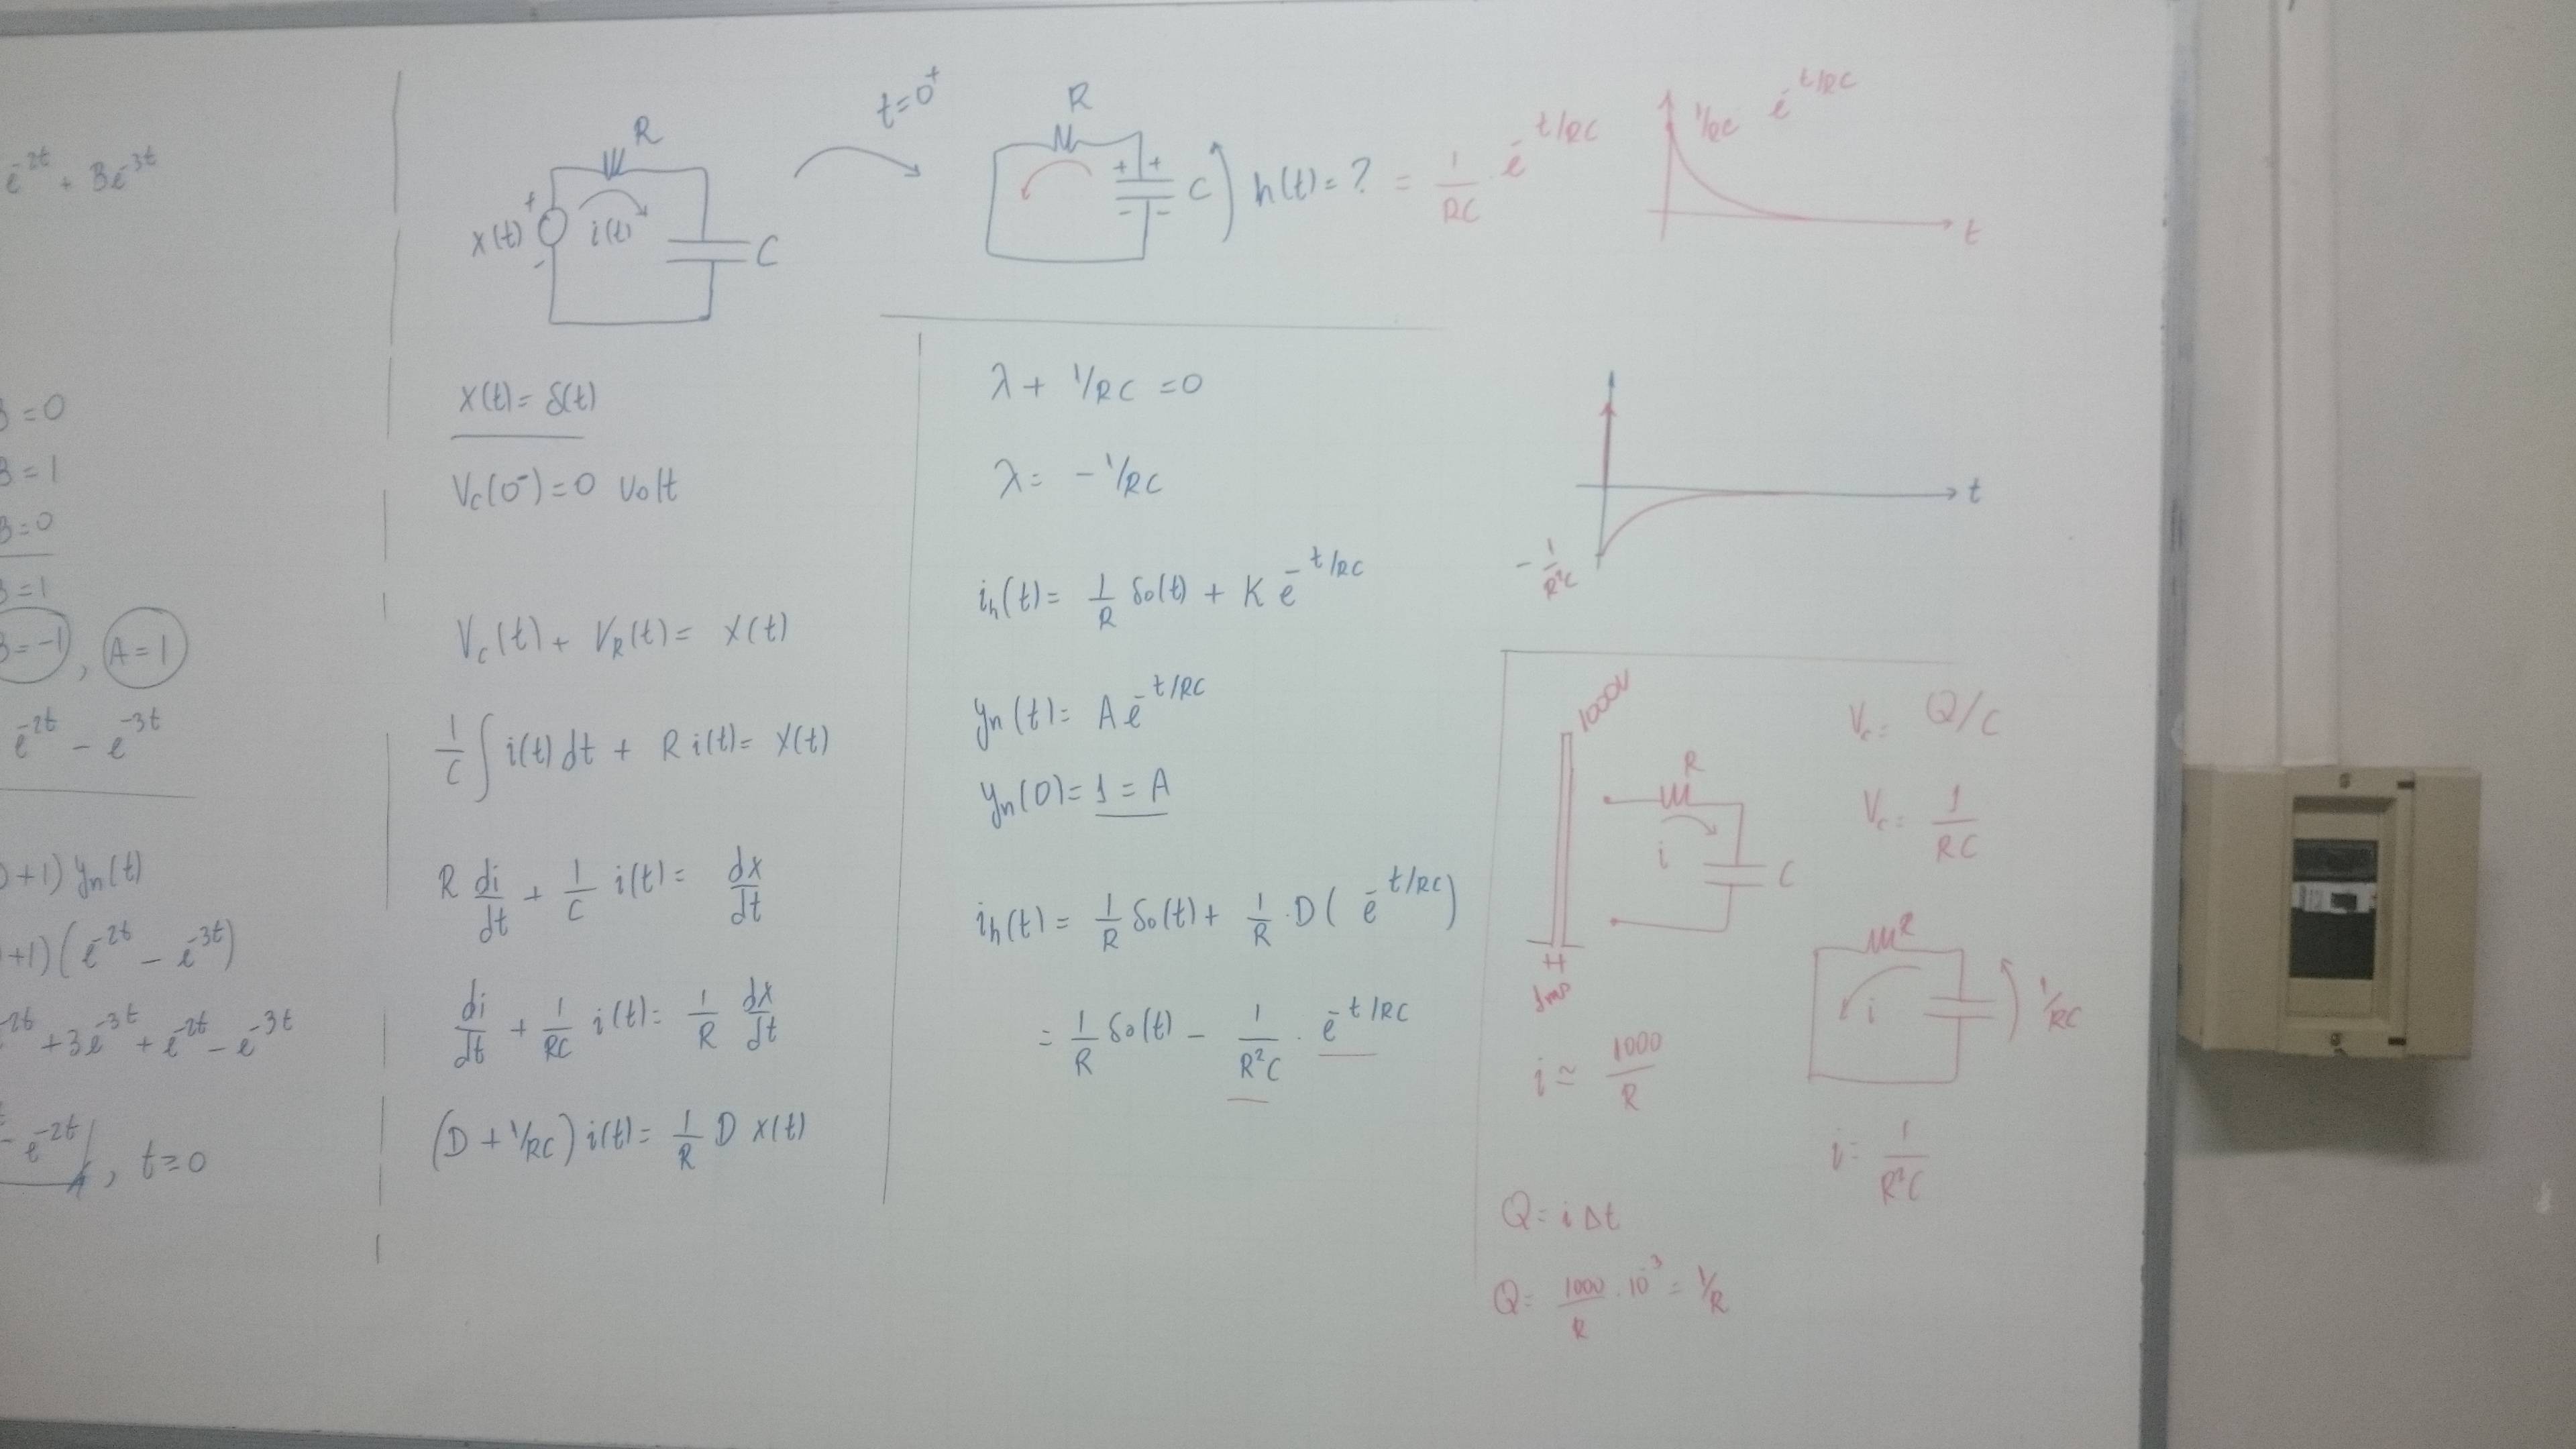 e^-2t + Be^-3t
B = 0
B = 1
B = 0
B = 1
B = -1 , A = 1
e^-2t - e^-3t
D+1) yn(t)
+1)(e^-2t - e^-3t)
-2t + 3e^-3t + e^-2t - e^-3t
- e^-2t , t≥0
R
x(t) + - i(t) C
t=0⁺
R
+ + - - C h(t) = ? = 1/RC · e^-t/RC
1/RC e^-t/RC
t
x(t) = δ(t)
Vc(0⁻) = 0 volt
Vc(t) + VR(t) = x(t)
1/C ∫ i(t) dt + R i(t) = x(t)
R di/dt + 1/C i(t) = dx/dt
di/dt + 1/RC i(t) = 1/R dx/dt
(D + 1/RC) i(t) = 1/R D x(t)
λ + 1/RC = 0
λ = - 1/RC
ih(t) = 1/R δ0(t) + K e^-t/RC
yn(t) = A e^-t/RC
yn(0) = 1 = A
ih(t) = 1/R δ0(t) + 1/R · D( e^-t/RC )
= 1/R δ0(t) - 1/R²C · e^-t/RC
t
- 1/R²C
1000V
R
i C
1ms
i ≃ 1000/R
Q = i Δt
Q = 1000/R · 10^-3 = 1/R
Vc = Q/C
Vc = 1/RC
R
i 1/RC
i = 1/R²C